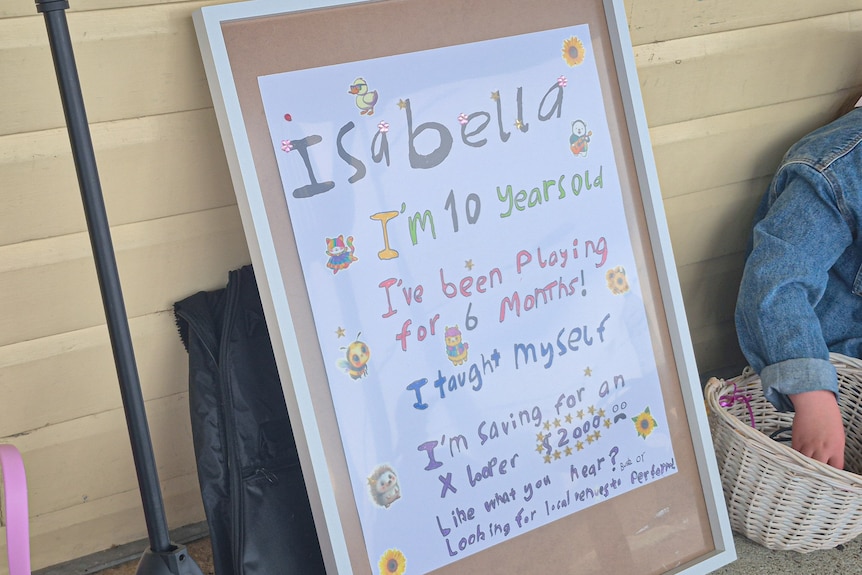 isabella
I'm 10 years old
I've been Playing
for 6 Months!
I taught myself
I'm saving for an
X looper $2000.00
Like what you hear?
Looking for local venues to perform